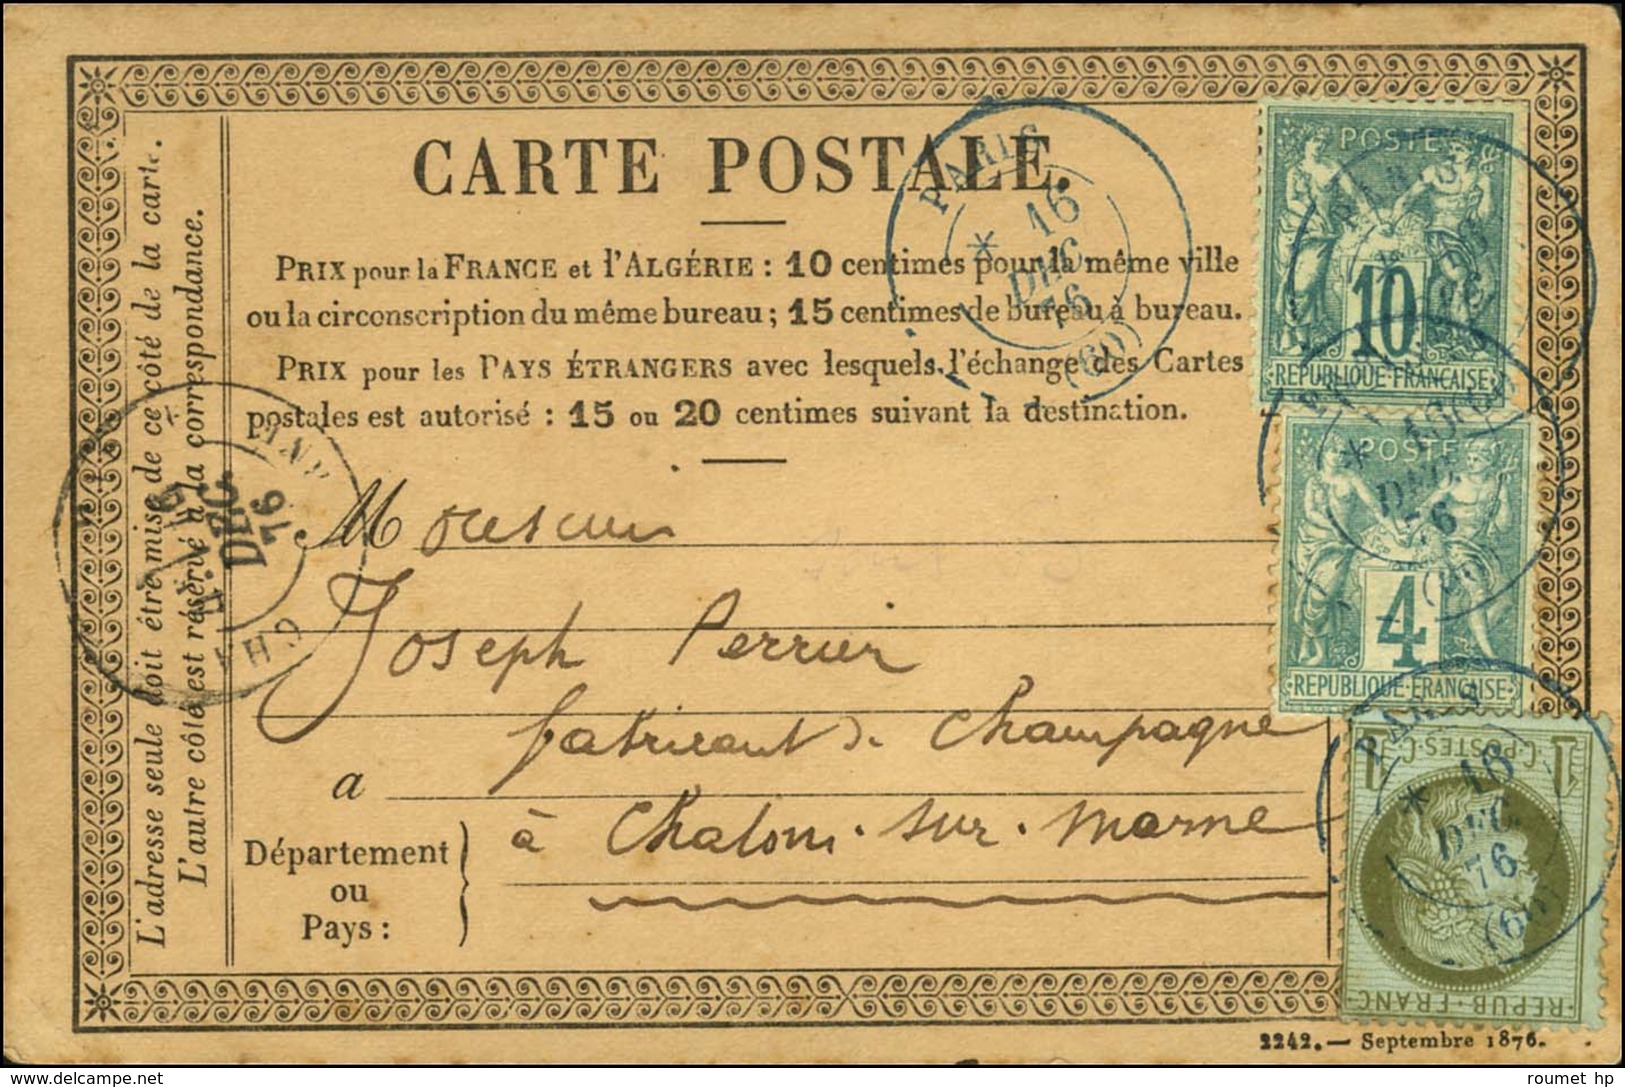 CARTE POSTALE.
PRIX pour la FRANCE et l'ALGÉRIE : 10 centimes pour la même ville
ou la circonscription du même bureau ; 15 centimes de bureau à bureau.
PRIX pour les PAYS ÉTRANGERS avec lesquels l'échange des Cartes
postales est autorisé : 15 ou 20 centimes suivant la destination.
L'adresse seule doit être mise de ce côté de la carte.
L'autre côté est réservé à la correspondance.
Monsieur
Joseph Perrier
fabricant de Champagne
a
à Chalons-sur-Marne
Département
ou
Pays :
2242. — Septembre 1876.
PARIS
16
DEC.
76
(60)
POSTE
10
REPUBLIQUE FRANCAISE
16
DEC.
76
(60)
POSTE
4
REPUBLIQUE FRANCAISE
PARIS
16
DEC.
76
(60)
1 C. POSTES C. 1
REPUB. FRANC.
DEC.
76
roumet hp